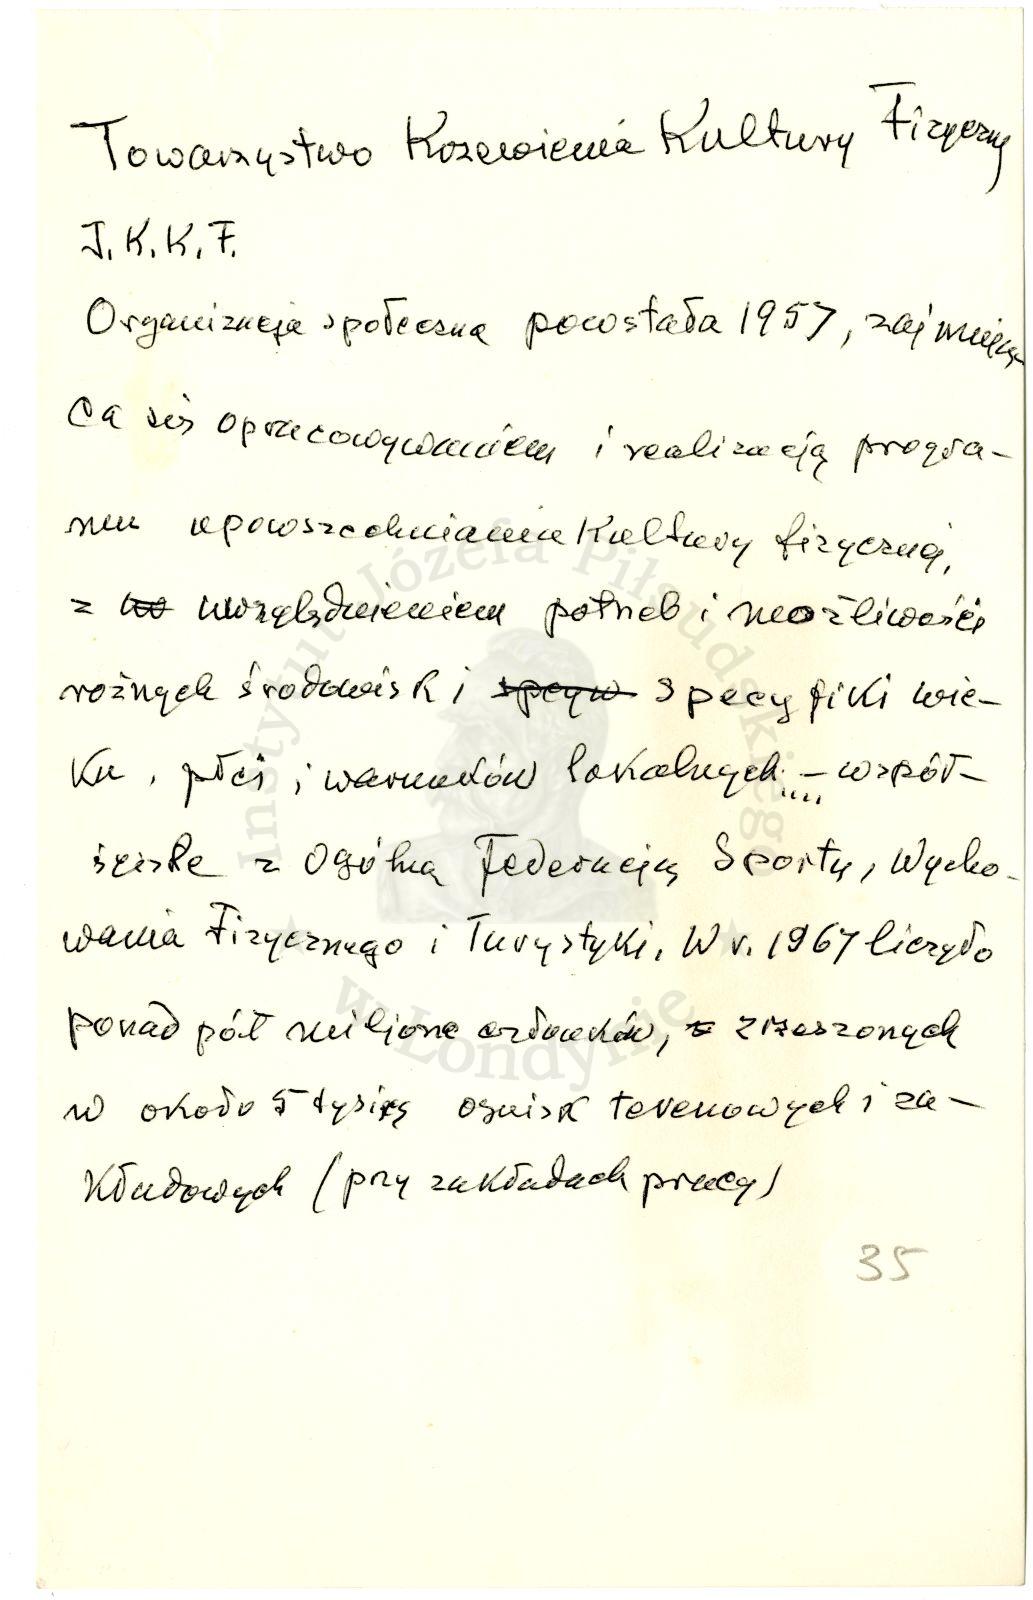 Towarzystwo Krzewienia Kultury Fizycznej
T.K.K.F.
Organizacja społeczna powstała 1957, zajmują-
ca się opracowywaniem i realizacją progra-
mu upowszechniania Kultury fizycznej,
z uwzględnieniem potrzeb i możliwości
rożnych środowisk i specyfiki wie-
ku, płci i warunków lokalnych.... – współ-
z Ogólną Federacją Sportu, Wycho-
wania Fizycznego i Turystyki. W r. 1967 liczyło
ponad pół miliona członków, zrzeszonych
w około 5 tysięcy ognisk terenowych i za-
kładowych (przy zakładach pracy)
35
Instytut Józefa Piłsudskiego
w Londynie